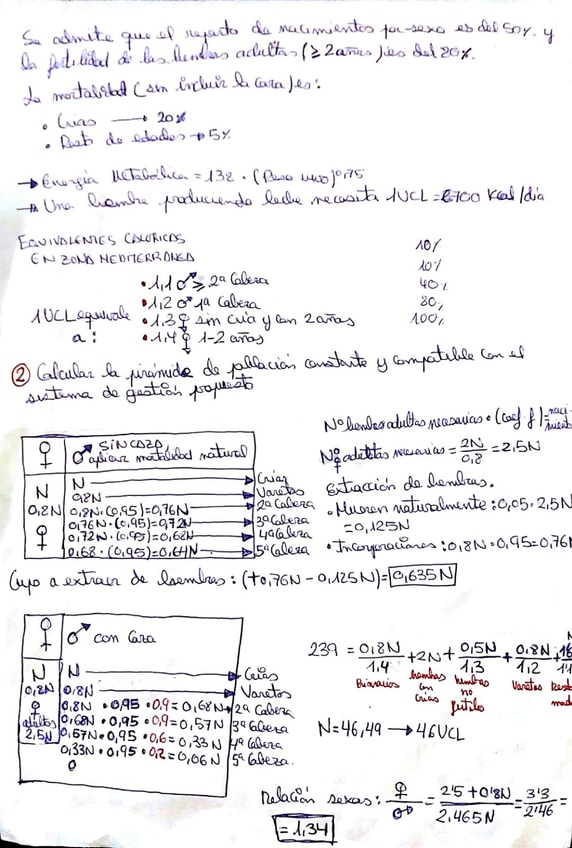 Se admite que el reparto de nacimientos por sexo es del 50% y
la fertilidad de las hembras adultas (≥ 2 años) es del 80%.
La mortalidad (sin incluir la caza) es:
• Crías → 20%
• Resto de edades → 5%
→ Energía Metabólica = 132 · (Peso vivo)^0,75
→ Una hembra produciendo leche necesita 1UCL = 2700 Kcal/día
EQUIVALENTES CALÓRICOS
EN ZONA MEDITERRÁNEA
10%
10%
40%
80%
100%
1UCL equivale a:
• 1,1 ♂ ≥ 2ª Cabeza
• 1,2 ♂ 1ª Cabeza
• 1,3 ♀ sin cría y con 2 años
• 1,4 ♀ 1-2 años
② Calcular la pirámide de población constante y compatible con el
sistema de gestión propuesto
♀ ♂ SIN CAZA, aplicar mortalidad natural
N N → Crías
0,8N 0,8N → Varetos
♀ 0,8N · (0,95) = 0,76N → 2ª Cabeza
0,76N · (0,95) = 0,72N → 3ª Cabeza
0,72N · (0,95) = 0,68N → 4ª Cabeza
0,68 · (0,95) = 0,64N → 5ª Cabeza
Nº hembras adultas necesarias · (coef. f) = naci-
mientos
Nº ♀ adultas necesarias = 2N/0,8 = 2,5N
Extracción de hembras.
• Mueren naturalmente: 0,05 · 2,5N
= 0,125N
• Incorporaciones: 0,8N · 0,95 = 0,76N
Cupo a extraer de hembras: (+0,76N - 0,125N) = 0,635N
♀ ♂ con Caza
N N → Crías
0,8N 0,8N → Varetos
♀ adultas 2,5N
0,8N · 0,95 · 0,9 = 0,68N → 2ª Cabeza
0,68N · 0,95 · 0,9 = 0,57N 3ª Cabeza
0,57N · 0,95 · 0,6 = 0,33N 4ª Cabeza
0,33N · 0,95 · 0,2 = 0,06N 5ª Cabeza.
0
239 = 0,8N/1,4 + 2N + 0,5N/1,3 + 0,8N/1,2 +
hembras con crías
hembras no fértiles
Varetos
N = 46,49 → 46UCL
Relación sexos: ♀/♂ = 2'5 + 0'8N / 2,465N = 3'3/2'46 =
= 1,34